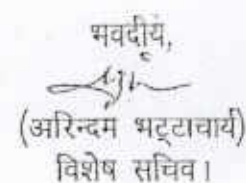 भवदीय,
(अरिन्दम भट्टाचार्य)
विशेष सचिव।